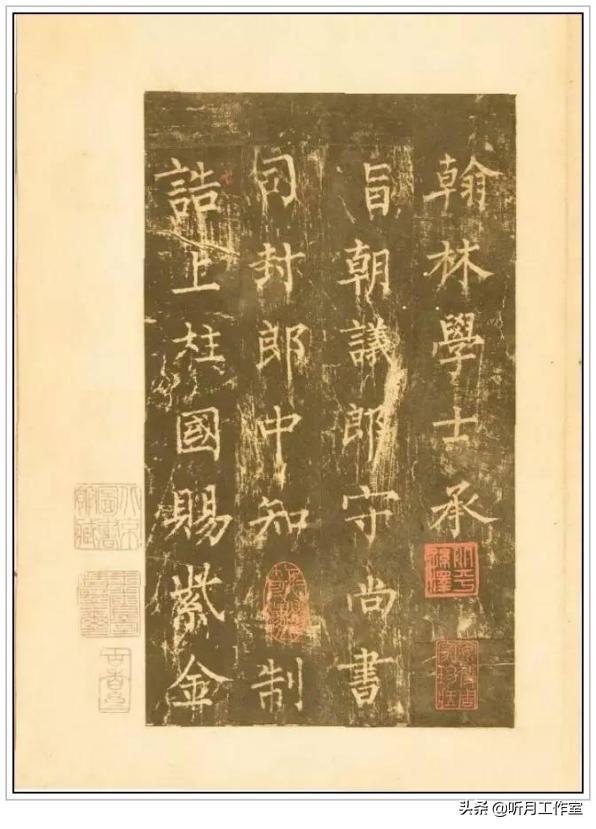 翰林學士承
旨朝議郎守尚書
司封郎中知 制
誥上柱國賜紫金
头条 @听月工作室